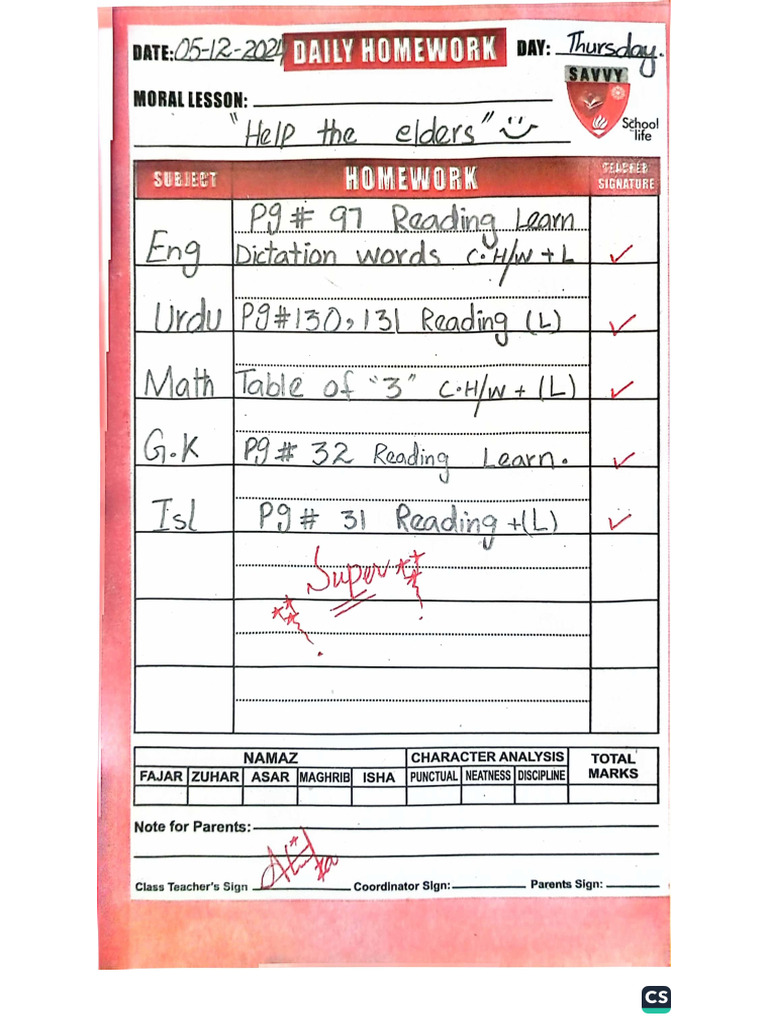 DATE: 05-12-2024 DAILY HOMEWORK DAY: Thursday.
MORAL LESSON:
SAVVY
School
life
"Help the elders"
SUBJECT HOMEWORK TEACHER SIGNATURE
Pg # 97 Reading Learn
Eng Dictation words C.H/W + L
Urdu Pg#130,131 Reading (L)
Math Table of "3" C.H/W + (L)
G.K Pg # 32 Reading Learn.
Isl Pg # 31 Reading +(L)
Super
NAMAZ CHARACTER ANALYSIS TOTAL MARKS
FAJAR ZUHAR ASAR MAGHRIB ISHA PUNCTUAL NEATNESS DISCIPLINE
Note for Parents:
Class Teacher's Sign Coordinator Sign: Parents Sign:
CS